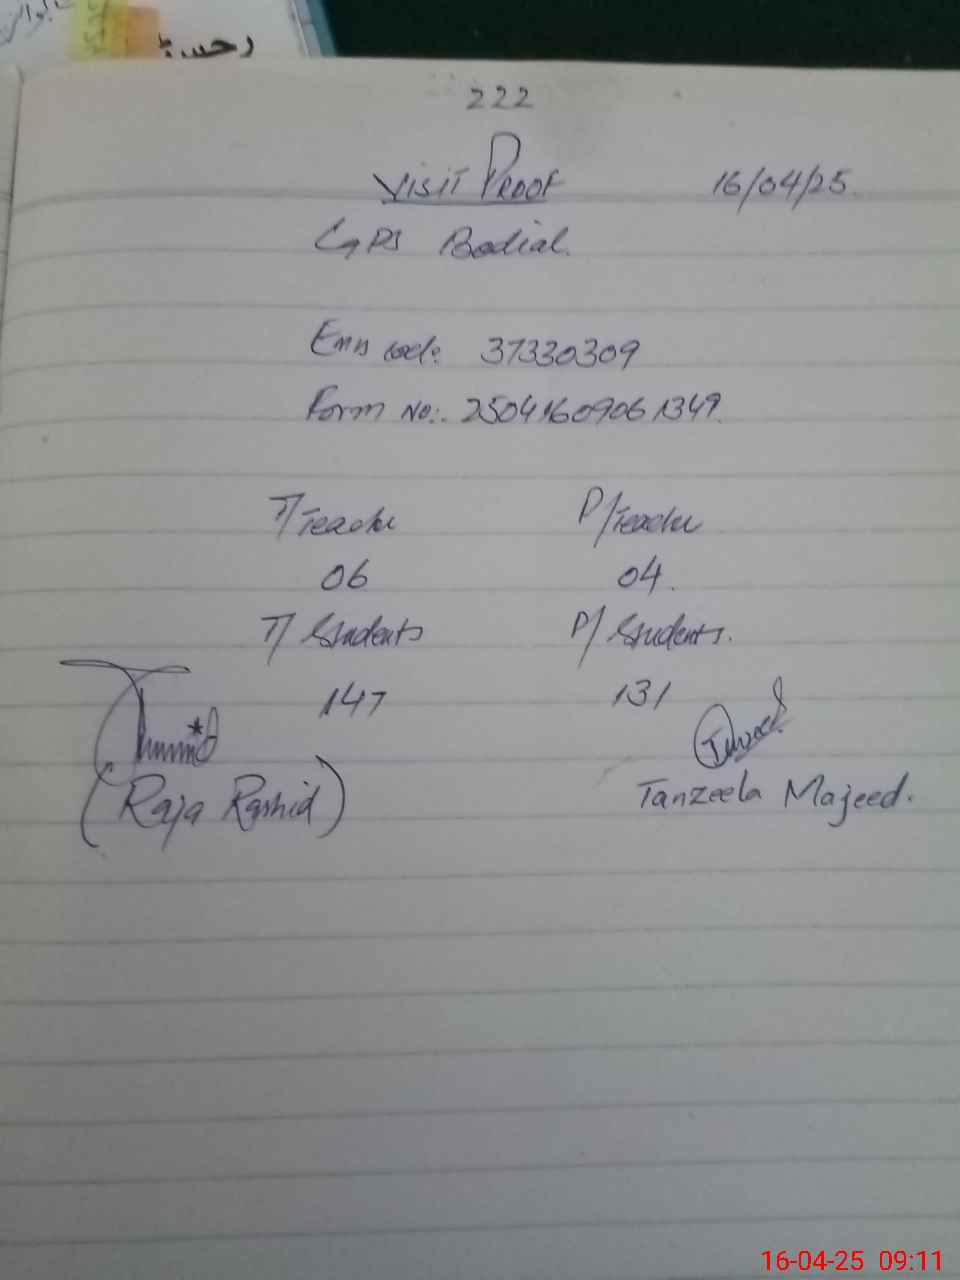 رحسـ
222
Visit Proof 16/04/25
GPS Badial.
Emis code: 37330309
Form No:. 25041609061349.
T/Teacher P/Teacher
06 04.
T/ Students P/ Students.
147 131
(Raja Rashid) Tanzeela Majeed.
16-04-25 09:11